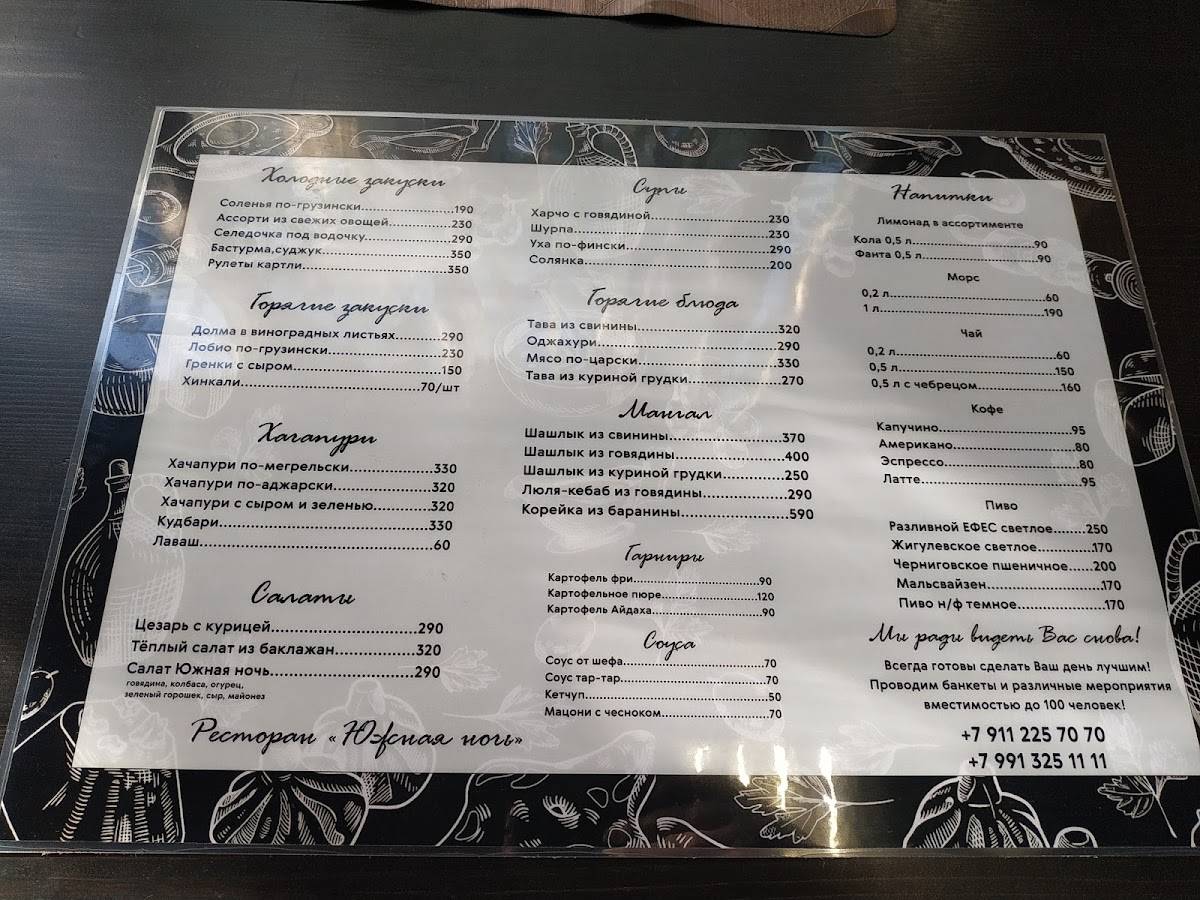 Холодные закуски
Соленья по-грузински..........................190
Ассорти из свежих овощей.................230
Селедочка под водочку........................290
Бастурма,суджук...................................350
Рулеты картли........................................350
Горячие закуски
Долма в виноградных листьях..........290
Лобио по-грузински.............................230
Гренки с сыром.....................................150
Хинкали...............................................70/шт
Хачапури
Хачапури по-мегрельски...................330
Хачапури по-аджарски......................320
Хачапури с сыром и зеленью............320
Кудбари...............................................330
Лаваш....................................................60
Салаты
Цезарь с курицей..............................290
Тёплый салат из баклажан................320
Салат Южная ночь.............................290
говядина, колбаса, огурец,
зеленый горошек, сыр, майонез
Ресторан «Южная ночь»
Супы
Харчо с говядиной.............................230
Шурпа..................................................230
Уха по-фински.....................................290
Солянка...............................................200
Горячие блюда
Тава из свинины..................................320
Оджахури.............................................290
Мясо по-царски...................................330
Тава из куриной грудки......................270
Мангал
Шашлык из свинины..........................370
Шашлык из говядины.........................400
Шашлык из куриной грудки..............250
Люля-кебаб из говядины...................290
Корейка из баранины.........................590
Гарниры
Картофель фри....................................90
Картофельное пюре...........................120
Картофель Айдаха...............................90
Соуса
Соус от шефа.......................................70
Соус тар-тар........................................70
Кетчуп..................................................50
Мацони с чесноком.............................70
Напитки
Лимонад в ассортименте
Кола 0,5 л.............................................90
Фанта 0,5 л...........................................90
Морс
0,2 л......................................................60
1 л.......................................................190
Чай
0,2 л......................................................60
0,5 л....................................................150
0,5 л с чебрецом................................160
Кофе
Капучино..............................................95
Американо............................................80
Эспрессо..............................................80
Латте.....................................................95
Пиво
Разливной ЕФЕС светлое.....250
Жигулевское светлое...........170
Черниговское пшеничное.....200
Мальсвайзен........................170
Пиво н/ф темное..................170
Мы рады видеть Вас снова!
Всегда готовы сделать Ваш день лучшим!
Проводим банкеты и различные мероприятия
вместимостью до 100 человек!
+7 911 225 70 70
+7 991 325 11 11